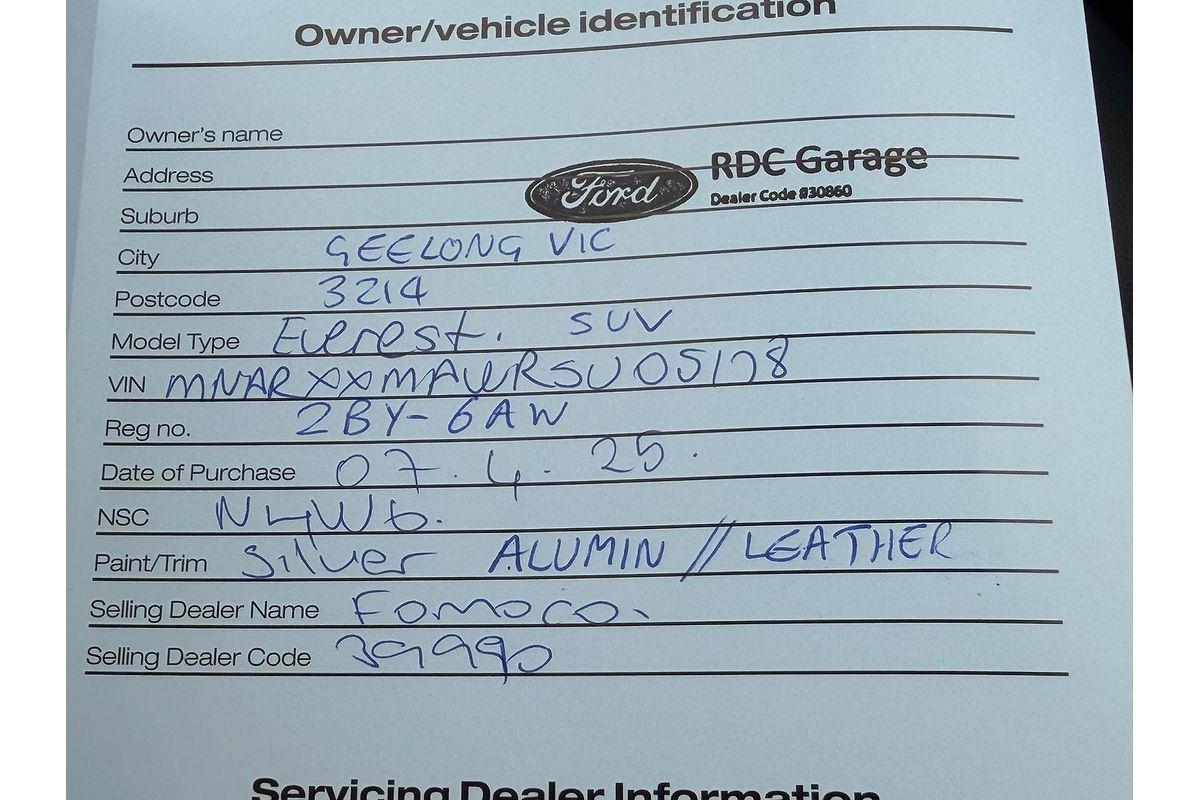 Owner/vehicle identification
Owner's name
Address
Ford RDC Garage
Dealer Code #30860
Suburb
City GEELONG VIC
Postcode 3214
Model Type Everest. SUV
VIN MNARXXMAWRSU05178
Reg no. 2BY-6AW
Date of Purchase 07.4.25.
NSC N4W6.
Paint/Trim Silver ALUMIN // LEATHER
Selling Dealer Name FOMOCO.
Selling Dealer Code 39990
Servicing Dealer Information